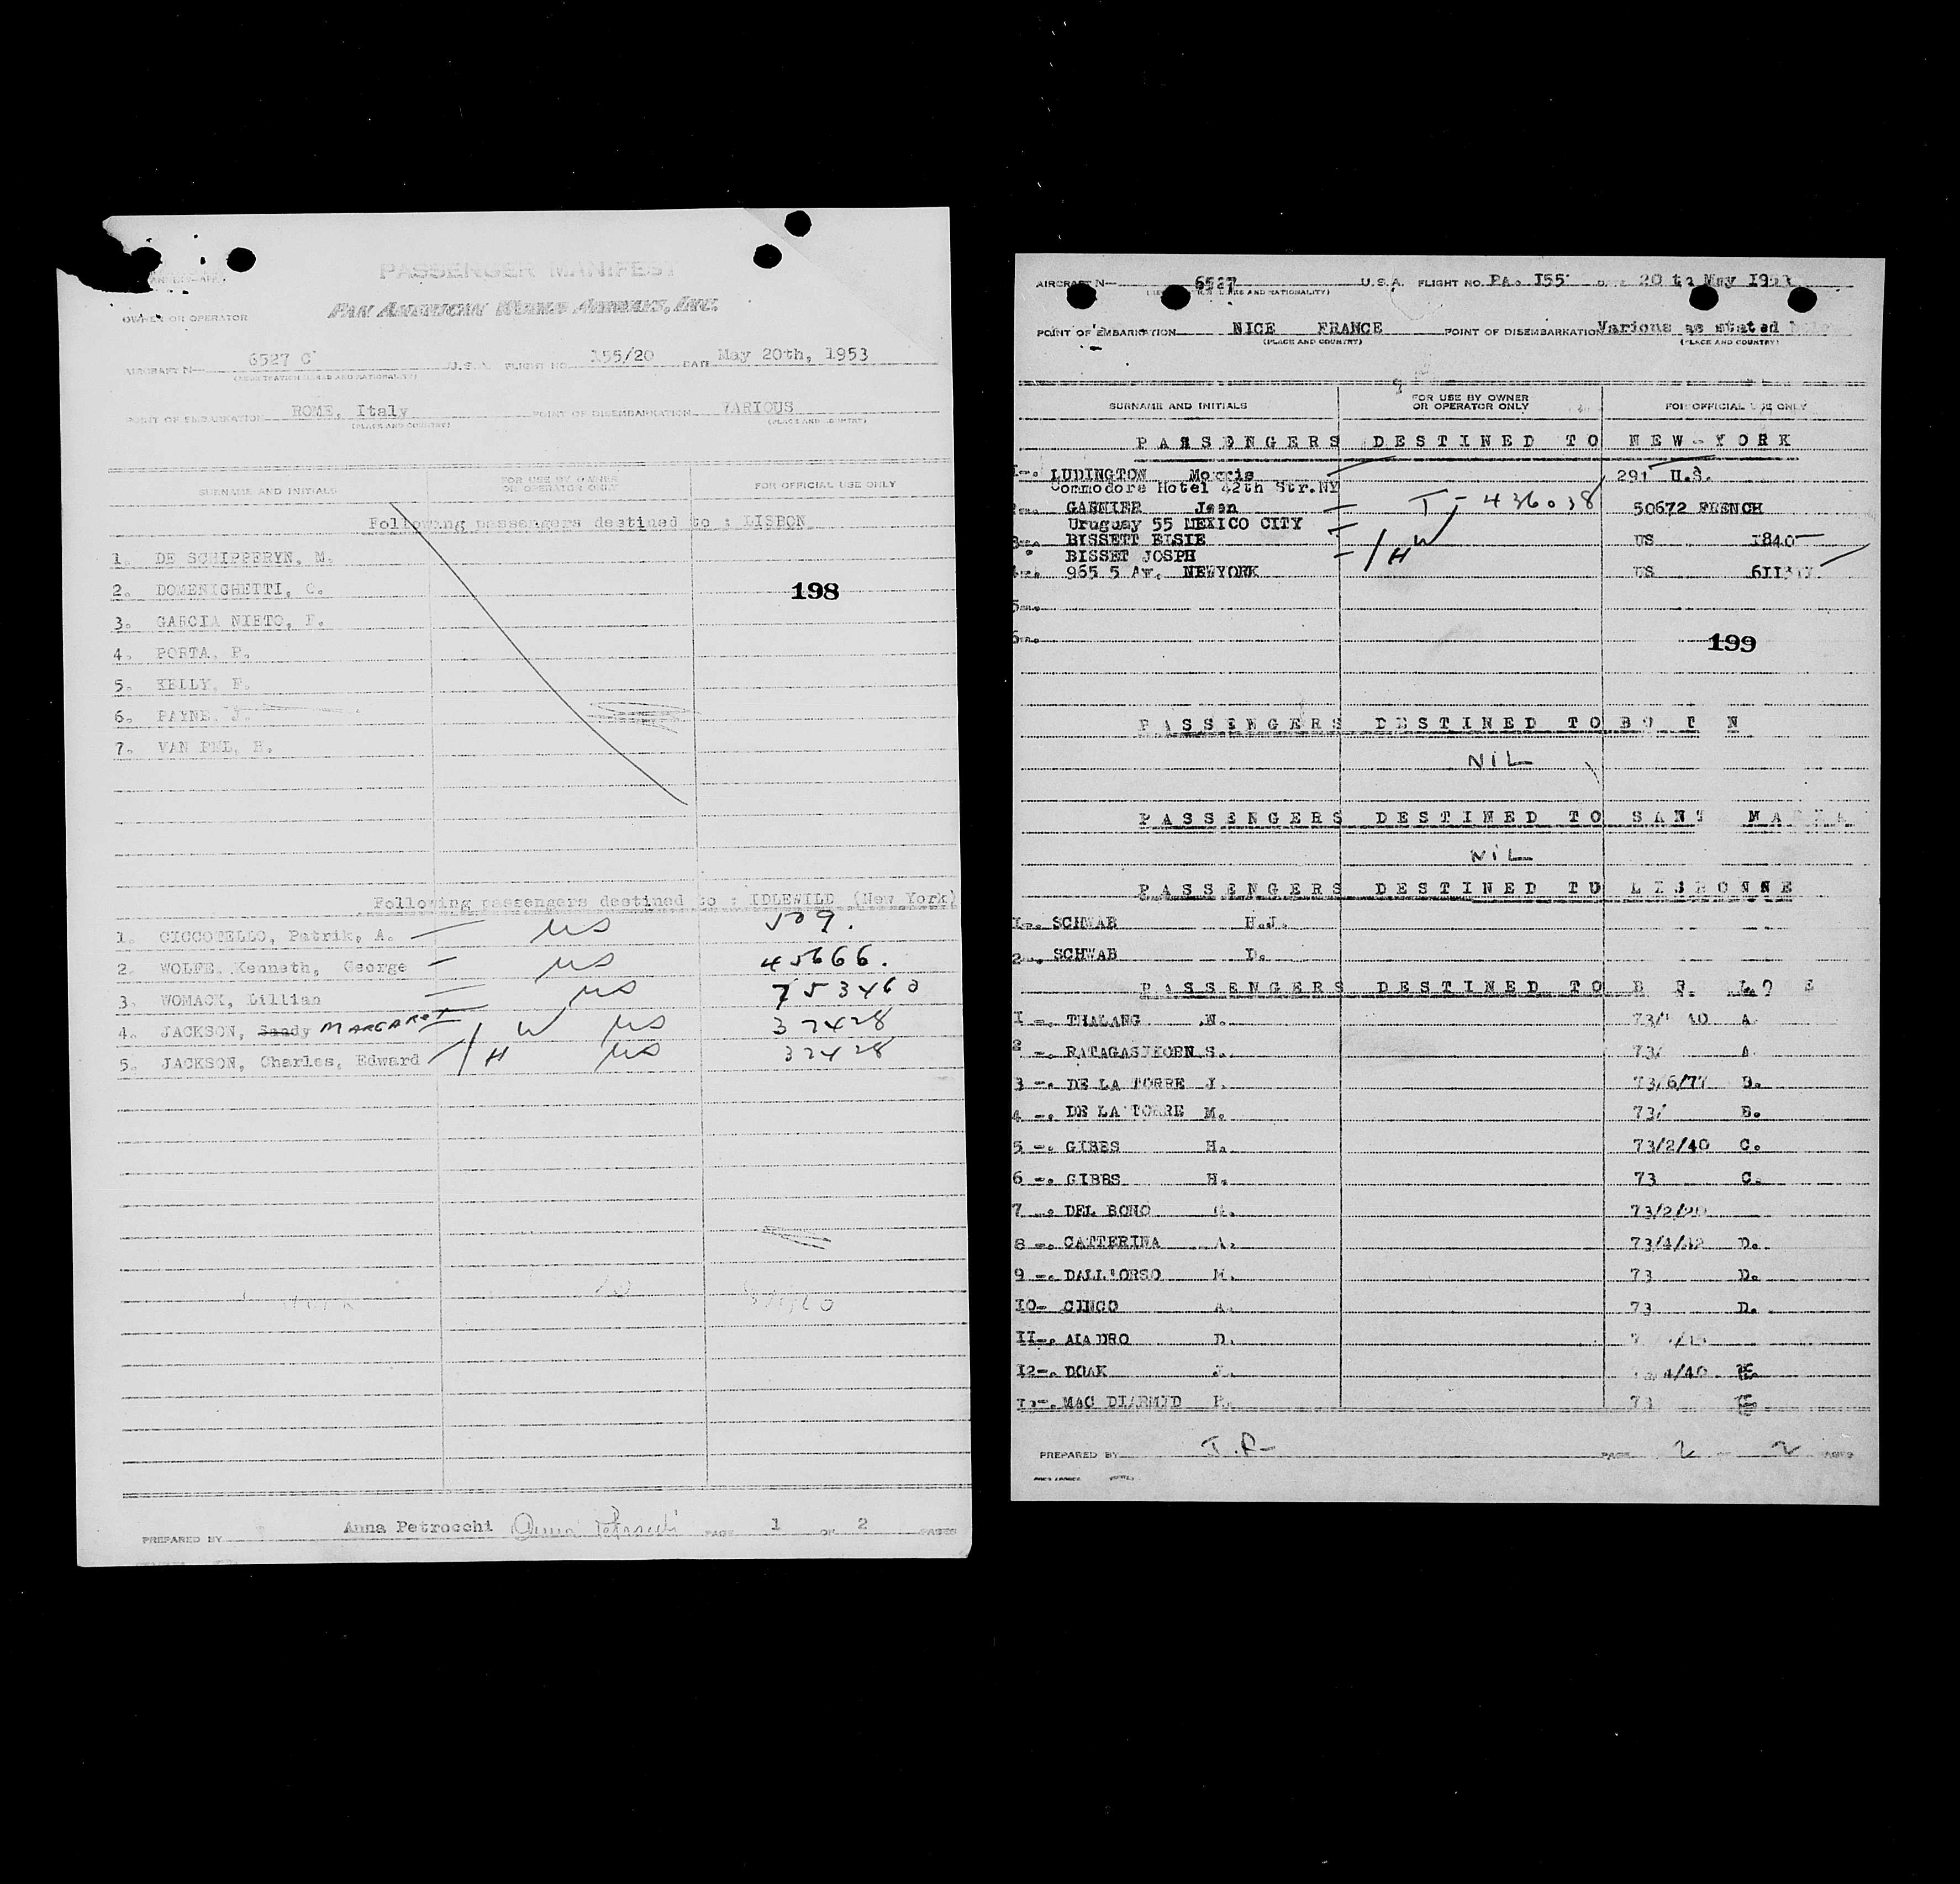 PASSENGER MANIFEST
PAN AMERICAN WORLD AIRWAYS, INC.
OWNER OR OPERATOR
AIRCRAFT N— 6527 C U.S.A. FLIGHT NO. 155/20 DATE May 20th, 1953
(REGISTRATION MARKS AND NATIONALITY)
POINT OF EMBARKATION ROME, Italy POINT OF DISEMBARKATION VARIOUS
(PLACE AND COUNTRY) (PLACE AND COUNTRY)
SURNAME AND INITIALS FOR USE BY OWNER OR OPERATOR ONLY FOR OFFICIAL USE ONLY
Following passengers destined to : LISBON
1. DE SCHIPPERYN, M.
2. DOMENIGHETTI, C. 198
3. GARCIA NIETO,
4. PORTA, P.
5. KELLY, F.
6. PAYNE, J.
7. VAN PEL, H.
Following passengers destined to : IDLEWILD (New York)
1. CICCOTELLO, Patrik, A. — US 509.
2. WOLFE, Kenneth, George — US 45666.
3. WOMACK, Lillian — US 753460
4. JACKSON, Sandy MARGARET — / W US 37428
5. JACKSON, Charles, Edward — / H US 37428
PREPARED BY Anna Petrocchi Anna Petrocchi PAGE 1 OF 2 PAGES
AIRCRAFT N— 6527 U.S.A. FLIGHT NO. PA. I55 20 th May 1953
POINT OF EMBARKATION NICE FRANCE POINT OF DISEMBARKATION Various as stated
(PLACE AND COUNTRY) (PLACE AND COUNTRY)
SURNAME AND INITIALS FOR USE BY OWNER OR OPERATOR ONLY FOR OFFICIAL USE ONLY
PASSENGERS DESTINED TO NEW-YORK
I-. LUDINGTON Morris — 291 U.S.
Commodore Hotel 42th Str.NY
2-. GARNIER Jean — T- 436038 50672 FRENCH
Uruguay 55 MEXICO CITY
3-. BISSETT ELSIE — / W US I840
BISSET JOSPH — / H
4-. 965 5 Av. NEWYORK US
5-.
6-.
199
PASSENGERS DESTINED TO
NIL
PASSENGERS DESTINED TO SANTA MARIA
NIL
PASSENGERS DESTINED TO LISBONNE
I-. SCHWAB H.J.
2-. SCHWAB D.
PASSENGERS DESTINED TO
I -. THALANG N. 40 A.
2 -. S. 73/ A.
3 -. DE LA TORRE J. 73/6/77 B.
4 -. DE LA TORRE M. 73/ B.
5 -. GIBBS H. 73/2/40 C.
6 -. GIBBS H. 73 C.
7 -. DEL BONO G. 73/2/20
8 -. CATTERINA A. 73/4/42 D.
9 -. DALL'ORSO M. 73 D.
IO- CINCO A. 73 D.
II-. D.
I2-. DOAK J. 4/40 E
I3-. MAC DIARMID 73 E
PREPARED BY J.R- PAGE 2 OF 2 PAGES